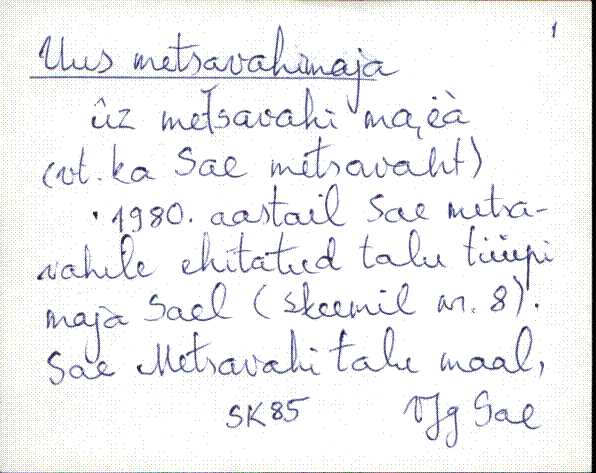 1
Uus metsavahimaja
ûz metsavahi ma,ëà
(vt. ka Sae metsavaht)
• 1980. aastail Sae metsa-
vahile ehitatud talu tüüpi
maja Sael (skeemil nr. 8).
Sae Metsavahi talu maal,
SK85 VJg Sae